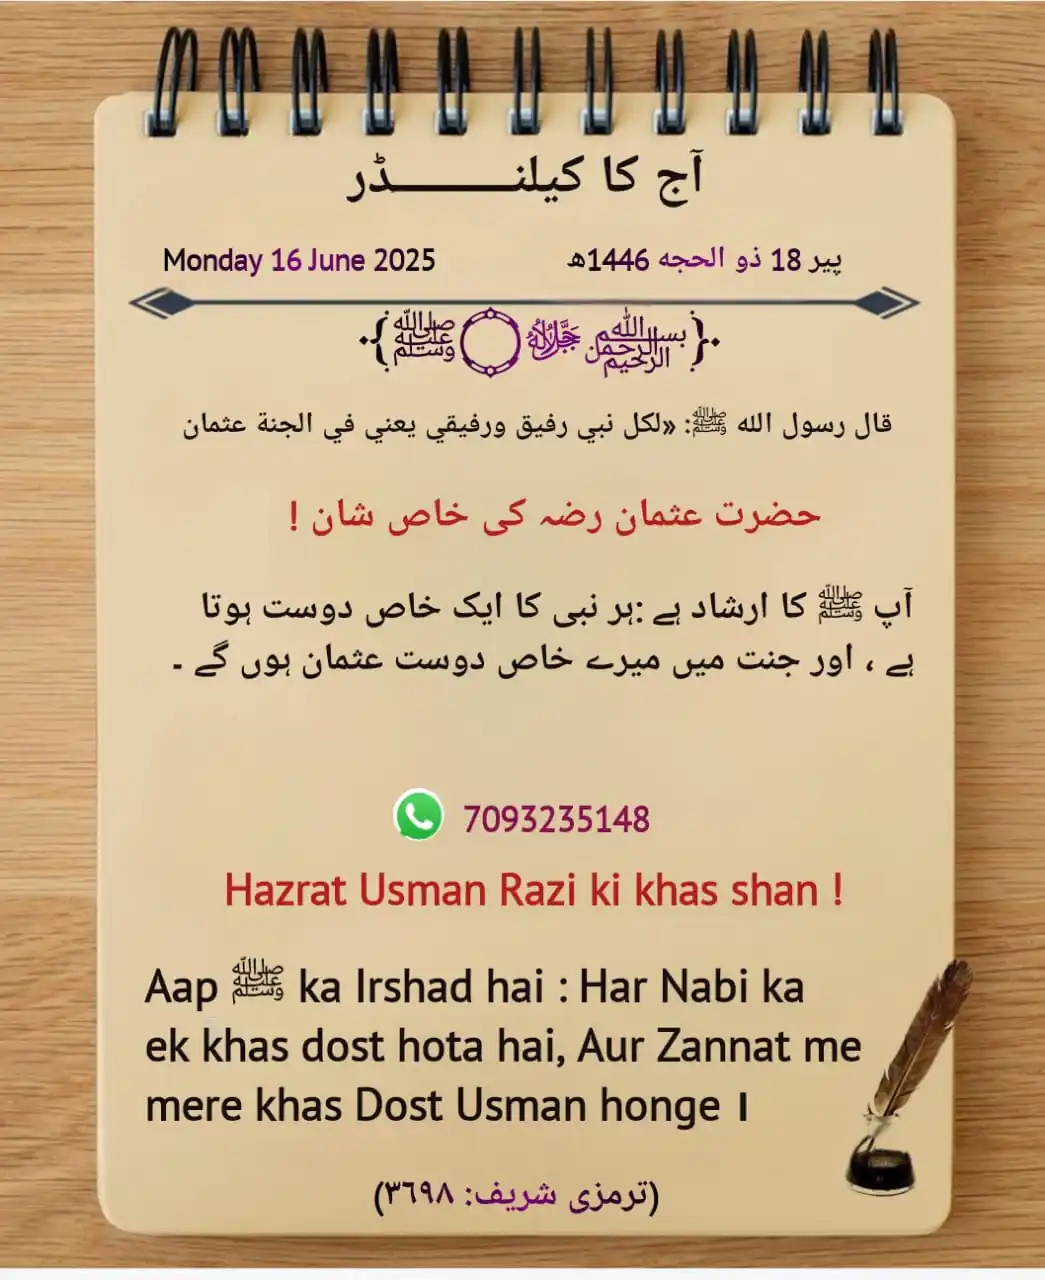 آج کا کیلنــــــــڈر
Monday 16 June 2025
پیر 18 ذو الحجه 1446ھ
﷽ ﷻ ﷺ
قال رسول الله ﷺ: «لكل نبي رفيق ورفيقي يعني في الجنة عثمان
حضرت عثمان رضہ کی خاص شان !
آپ ﷺ کا ارشاد ہے :ہر نبی کا ایک خاص دوست ہوتا
ہے ، اور جنت میں میرے خاص دوست عثمان ہوں گے ۔
7093235148
Hazrat Usman Razi ki khas shan !
Aap ﷺ ka Irshad hai : Har Nabi ka
ek khas dost hota hai, Aur Zannat me
mere khas Dost Usman honge ।
(ترمزی شریف: ٣٦٩٨)